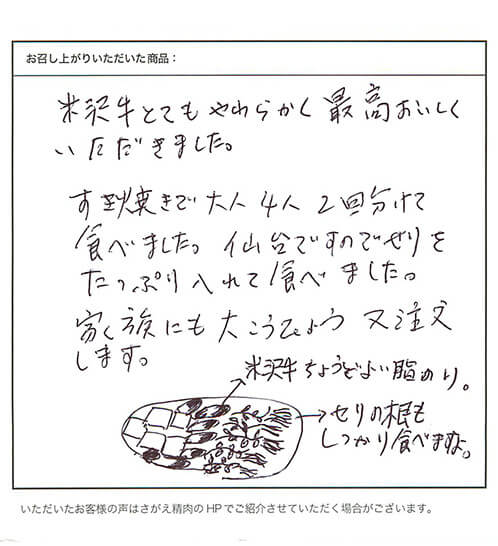 お召し上がりいただいた商品：
米沢牛とてもやわらかく最高おいしく
いただきました。
すき焼きで大人4人 2回分けて
食べました。仙台ですのでせりを
たっぷり入れて食べました。
家族にも大こうひょう 又注文
します。
米沢牛ちょうどよい脂のり。
セリの根も
しっかり食べますよ。
いただいたお客様の声はさがえ精肉のHPでご紹介させていただく場合がございます。